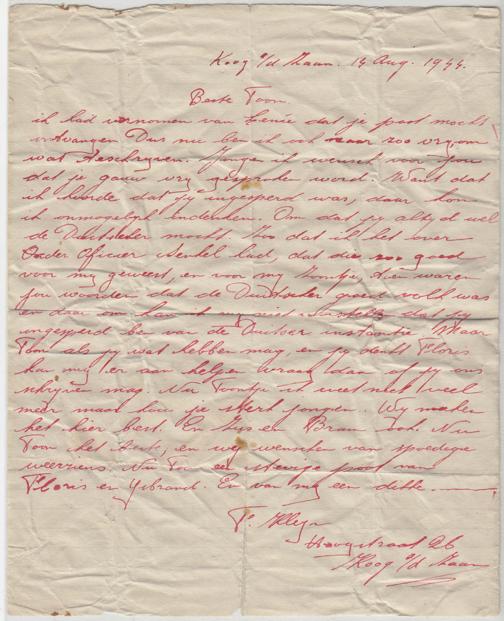 Koog a/d Zaan. 14 Aug. 1944.
Beste Toon.
ik had vernomen van dat je post mocht
ontvangen Dus nu ben ik ook zoo vry, om
wat te schryven. Jongen ik wensch voor jou
dat je gauw vry gesproken word. Want dat
ik hoorde dat jy ingesperd was, daar kon
ik onmogelyk inkomen. Om dat jy altyd wel
de Duitscher mocht. Zoo dat ik het over
Onder Oficier had, dat die zoo goed
voor my geweest, en voor my waren
jou woorden dat de Duitscher goed volk was
en daar om kan ik my niet dat jy
ingesperd ben van de Duitser instantie Maar
Toon als jy wat hebben mag, en jy denkt Floris
kan my er aan helpen vraag dan of jy ons
schryven mag. Nu Toontje ik weet niet veel
meer maar hou je sterk jongen. Wy maken
het hier best. En en Bram ook. Nu
Toon het beste, en wy wenschen van spoedige
weerziens. Nu Toon een stevige poot van
Floris en Ysbrand. En van my een dikke
P. Kleyn
Hoogstraat 26
Koog a/d Zaan